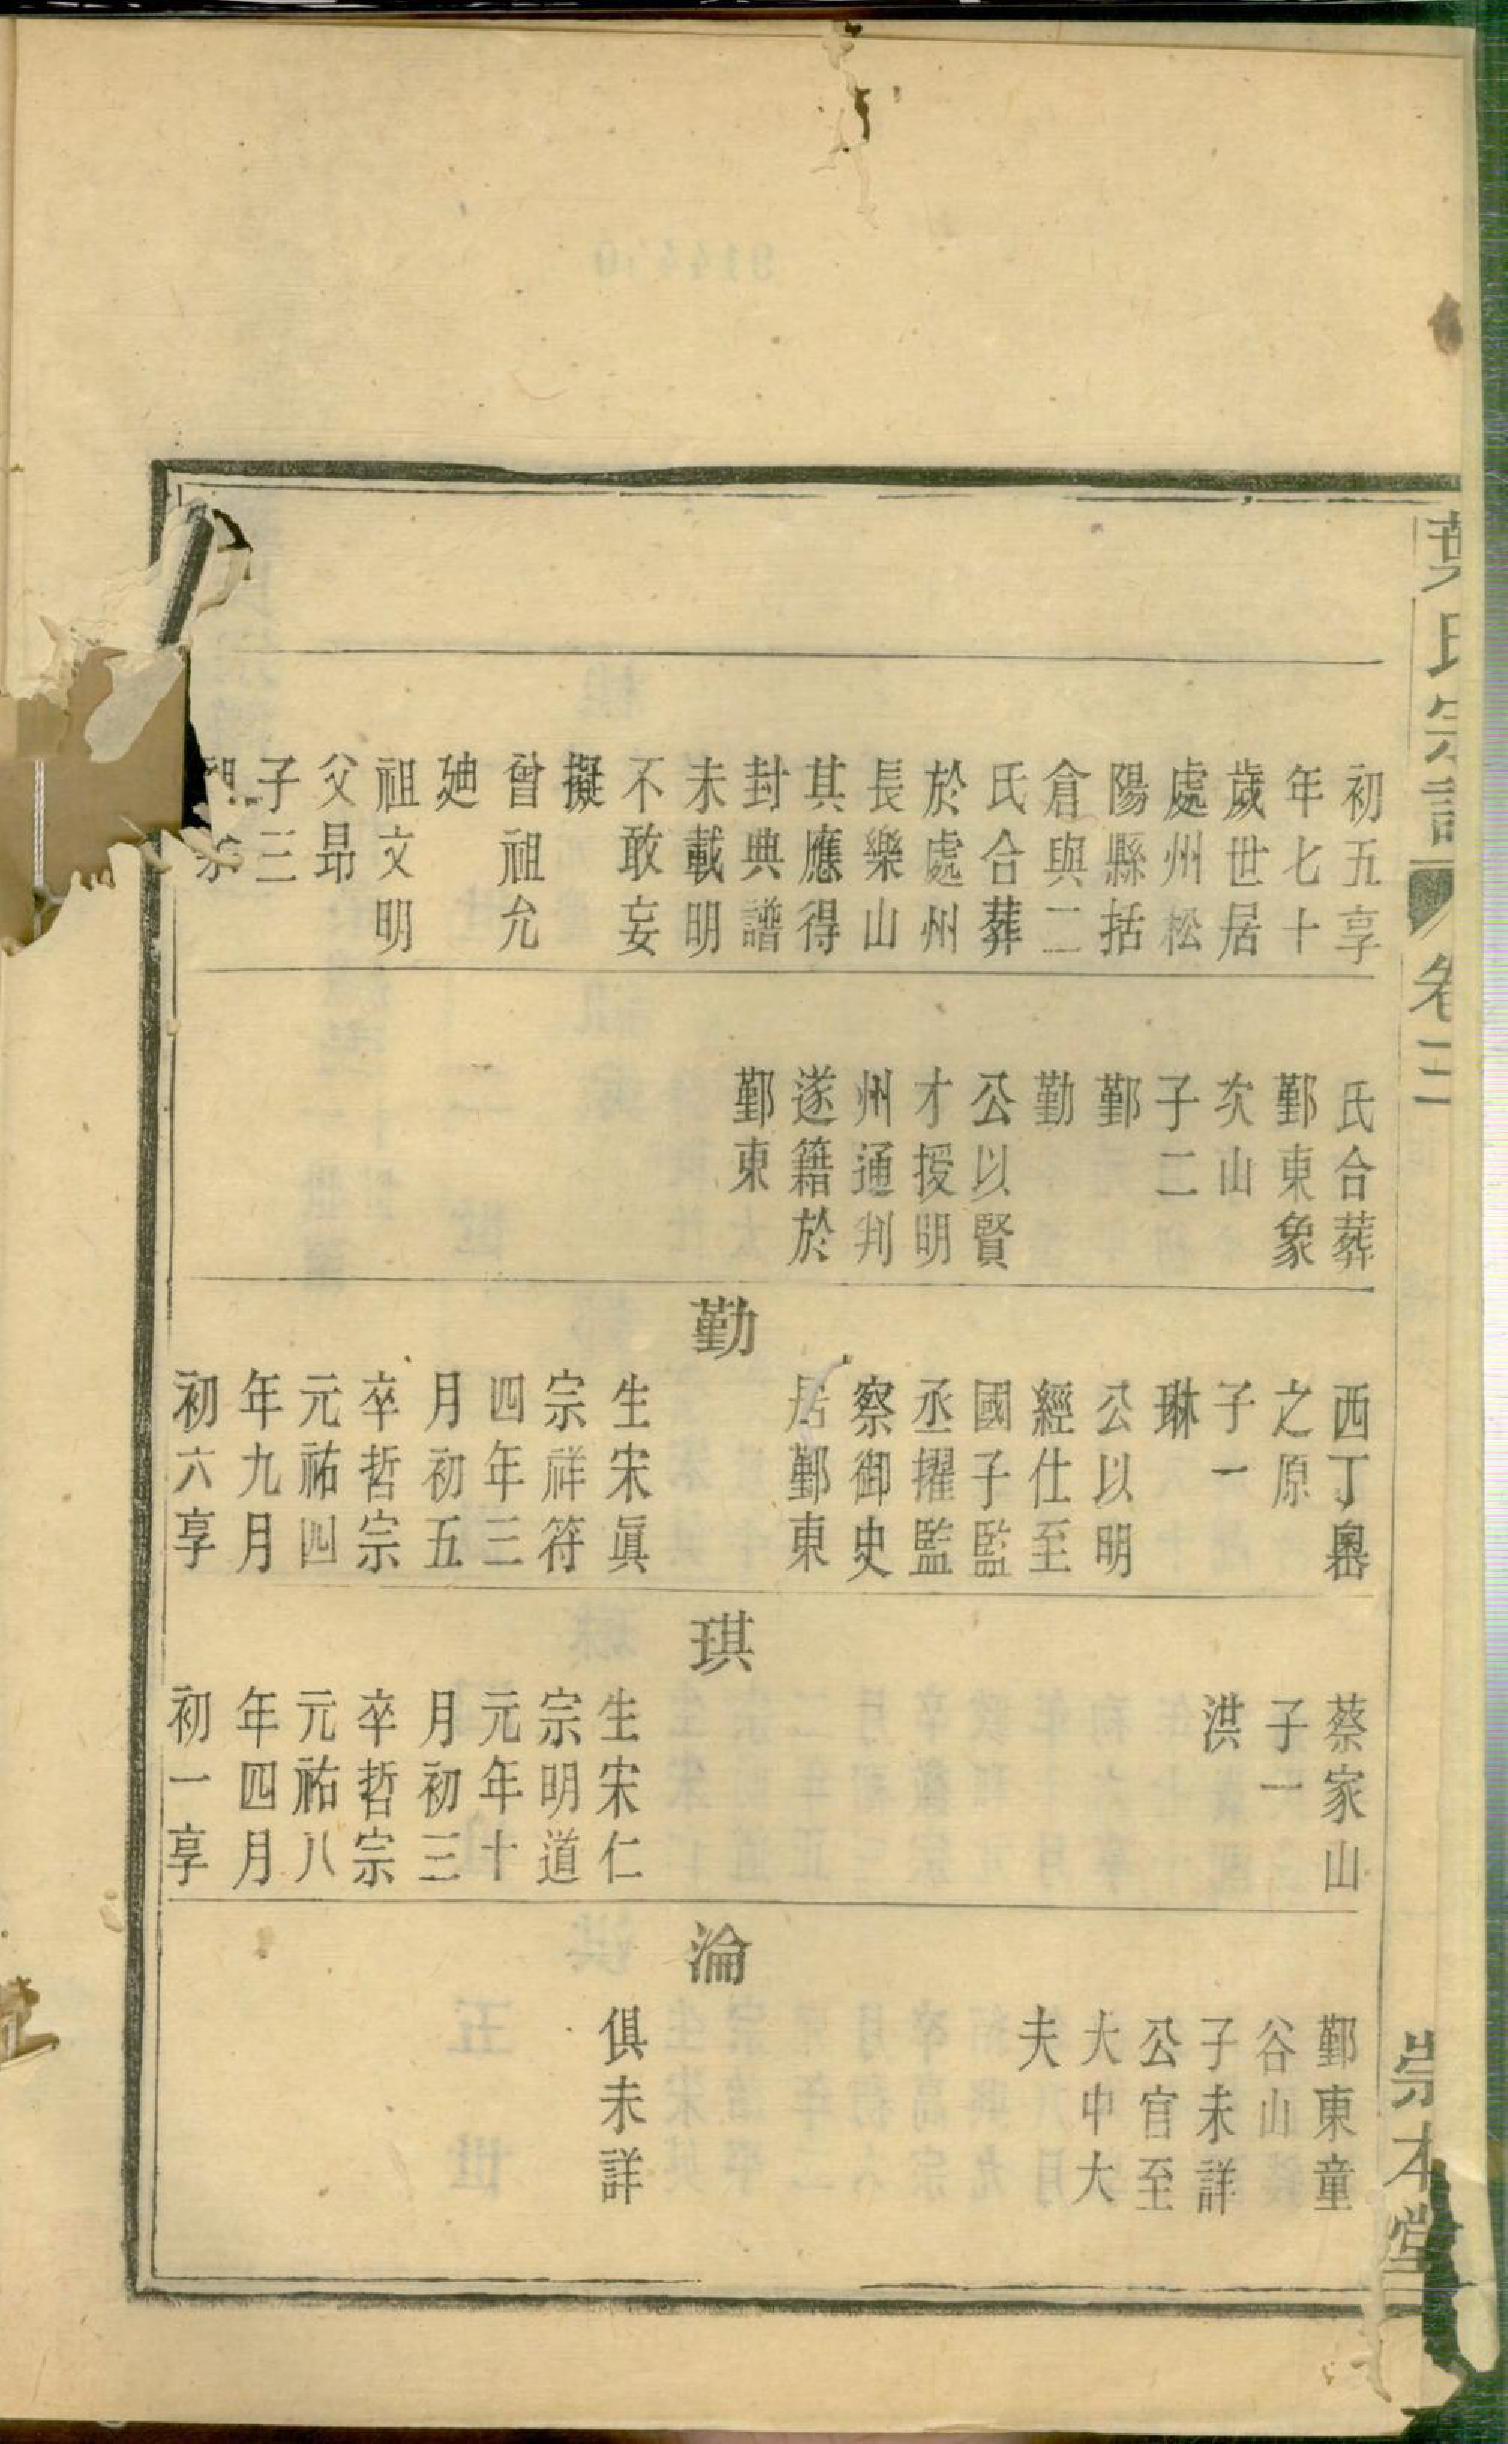 葉氏宗譜
卷二
崇本堂
初五享
年七十
歲世居
處州松
陽縣括
倉與二
氏合葬
於處州
長樂山
其應得
封典譜
未載明
不敢妄
擬
曾祖允
廸
祖文明
父昂
子三
氏合葬
鄞東象
次山
子二
鄞
勤
公以賢
才授明
州通判
遂籍於
鄞東
西丁嶴
之原
子一
琳
公以明
經仕至
國子監
丞擢監
察御史
居鄞東
勤
生宋眞
宗祥符
四年三
月初五
卒哲宗
元祐四
年九月
初六享
蔡家山
子一
洪
琪
生宋仁
宗明道
元年十
月初三
卒哲宗
元祐八
年四月
初一享
鄞東童
谷山
子未詳
公官至
大中大
夫
淪
俱未詳